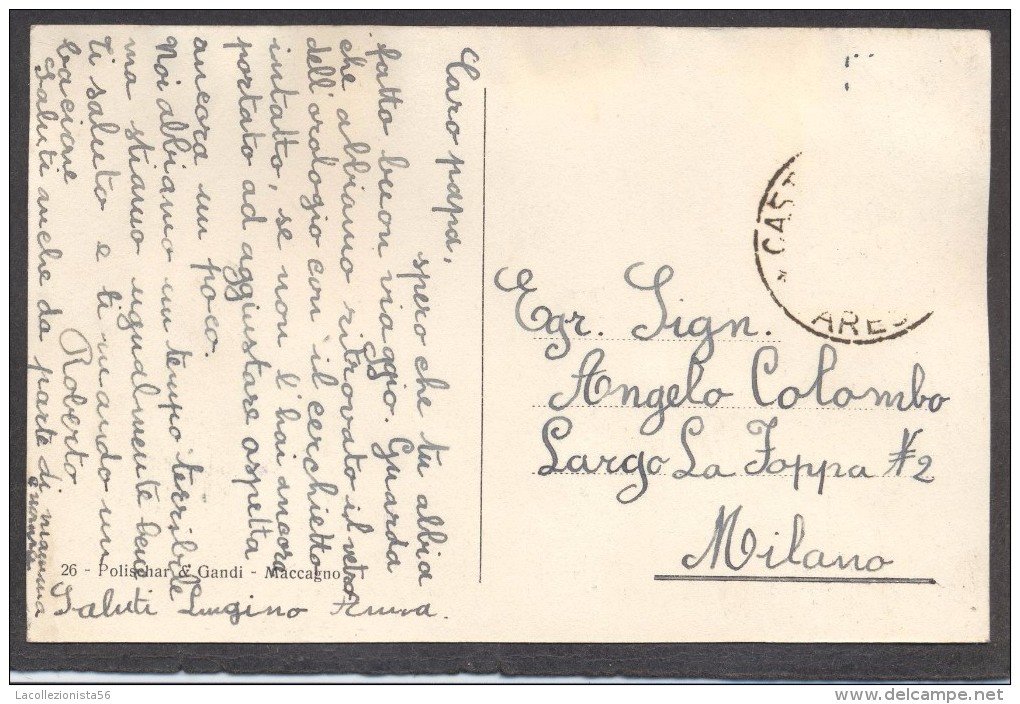 Caro papa,
spero che tu abbia
fatto buon viaggio. Guarda
che abbiamo ritrovato il vetro
dell'orologio con il cerchietto
intatto, se non l'hai ancora
portato ad aggiustare aspetta
ancora un poco.
Noi abbiamo un tempo terribile
ma stiamo ugualmente bene
Ti saluto e ti mando un
bacione
Roberto
Saluti anche da parte di mamma
e nonna
Saluti Luigino Anna.
26 - Polischar & Gandi - Maccagno
CAST
ARES
Egr. Sign.
Angelo Colombo
Largo La Foppa № 2
Milano
Lacollezionista56
delcampe.net